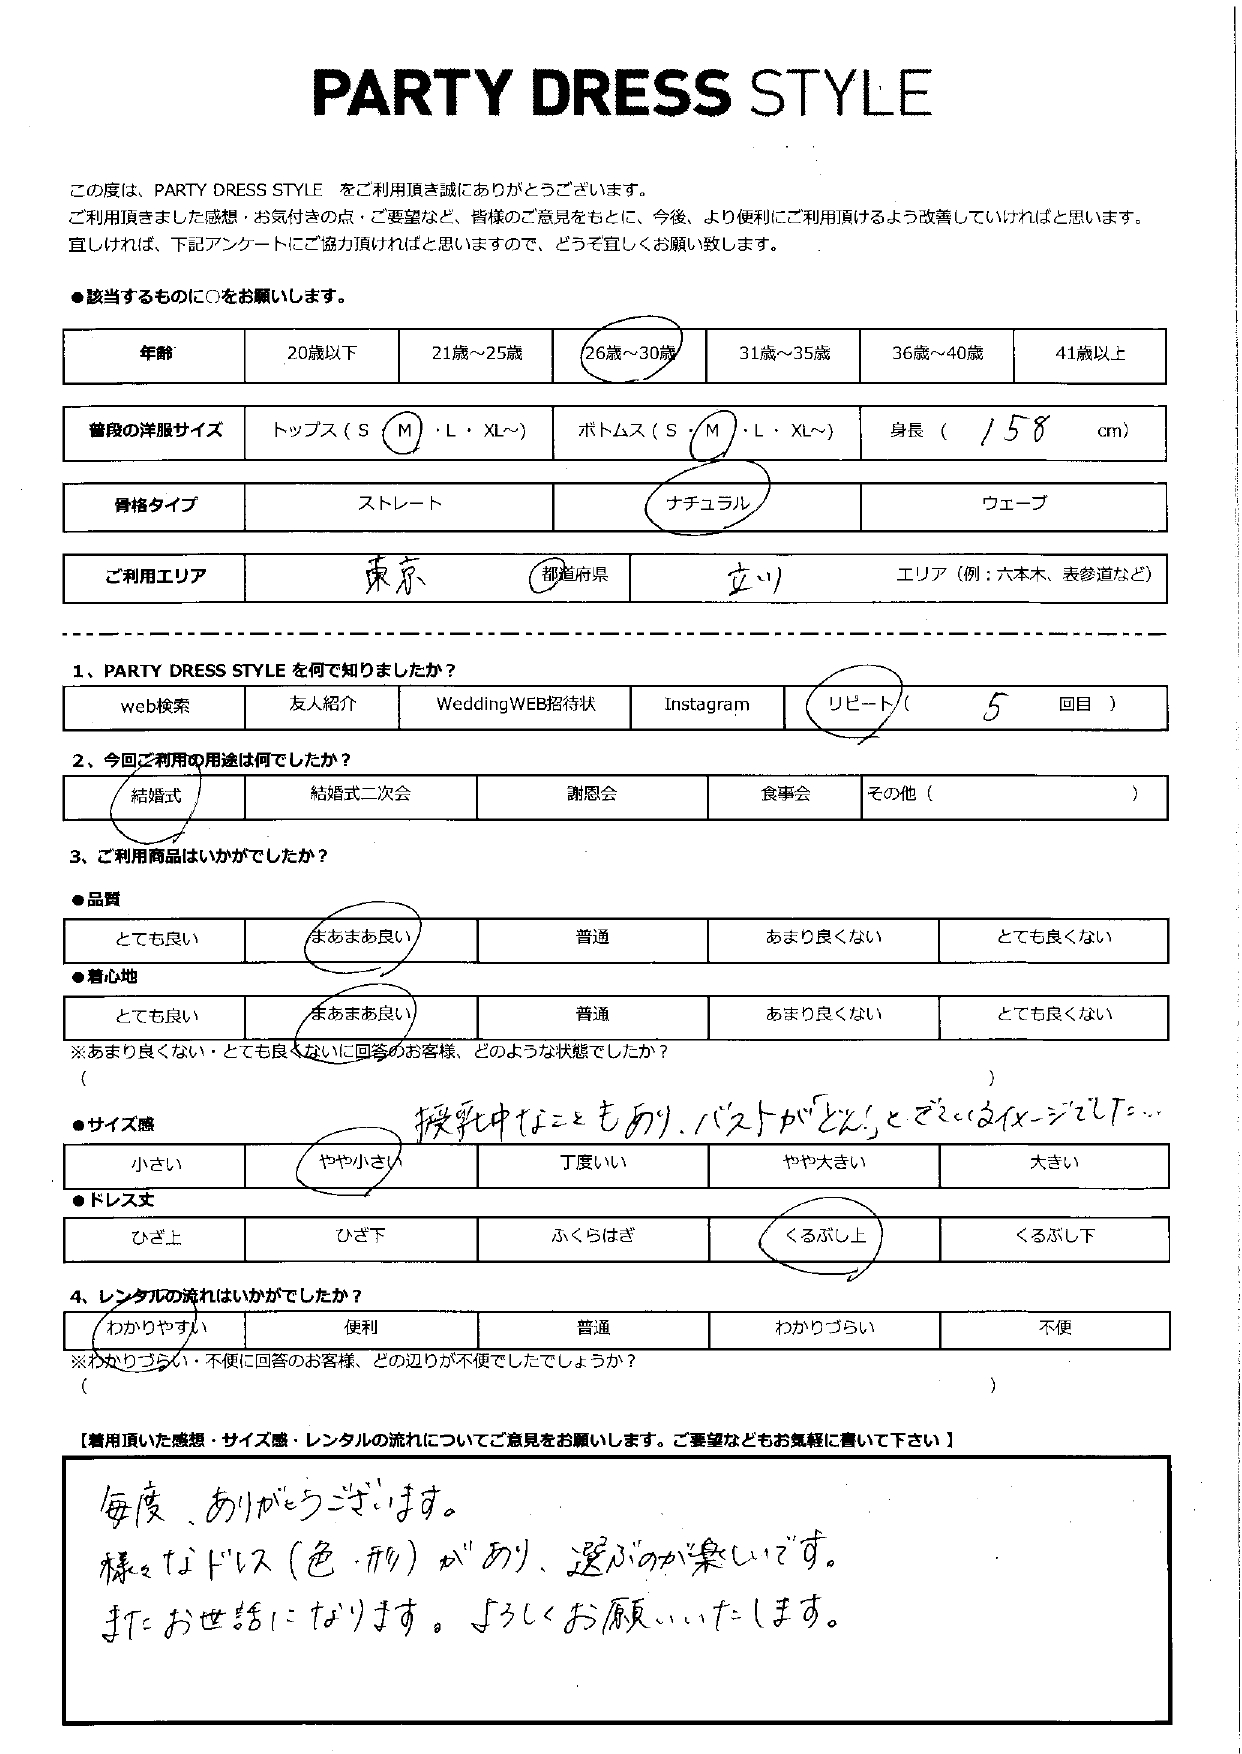 PARTY DRESS STYLE
この度は、PARTY DRESS STYLE　をご利用頂き誠にありがとうございます。
ご利用頂きました感想・お気付きの点・ご要望など、皆様のご意見をもとに、今後、より便利にご利用頂けるよう改善していければと思います。
宜しければ、下記アンケートにご協力頂ければと思いますので、どうぞ宜しくお願い致します。
●該当するものに○をお願いします。
年齢 20歳以下 21歳～25歳 26歳～30歳 31歳～35歳 36歳～40歳 41歳以上
普段の洋服サイズ トップス ( S ・ M ・ L ・ XL～) ボトムス ( S ・ M ・ L ・ XL～) 身長 ( 158 cm)
骨格タイプ ストレート ナチュラル ウェーブ
ご利用エリア 東京 都道府県 立川 エリア（例：六本木、表参道など）
1、PARTY DRESS STYLE を何で知りましたか？
web検索 友人紹介 WeddingWEB招待状 Instagram リピート ( 5 回目 )
2、今回ご利用の用途は何でしたか？
結婚式 結婚式二次会 謝恩会 食事会 その他 ( )
3、ご利用商品はいかがでしたか？
●品質
とても良い まあまあ良い 普通 あまり良くない とても良くない
●着心地
とても良い まあまあ良い 普通 あまり良くない とても良くない
※あまり良くない・とても良くないに回答のお客様、どのような状態でしたか？
( )
●サイズ感 授乳中なこともあり、バストが「どん!」とでているイメージでした…
小さい やや小さい 丁度いい やや大きい 大きい
●ドレス丈
ひざ上 ひざ下 ふくらはぎ くるぶし上 くるぶし下
4、レンタルの流れはいかがでしたか？
わかりやすい 便利 普通 わかりづらい 不便
※わかりづらい・不便に回答のお客様、どの辺りが不便でしたでしょうか？
( )
【着用頂いた感想・サイズ感・レンタルの流れについてご意見をお願いします。ご要望などもお気軽に書いて下さい】
毎度、ありがとうございます。
様々なドレス(色・形)があり、選ぶのが楽しいです。
またお世話になります。よろしくお願いいたします。